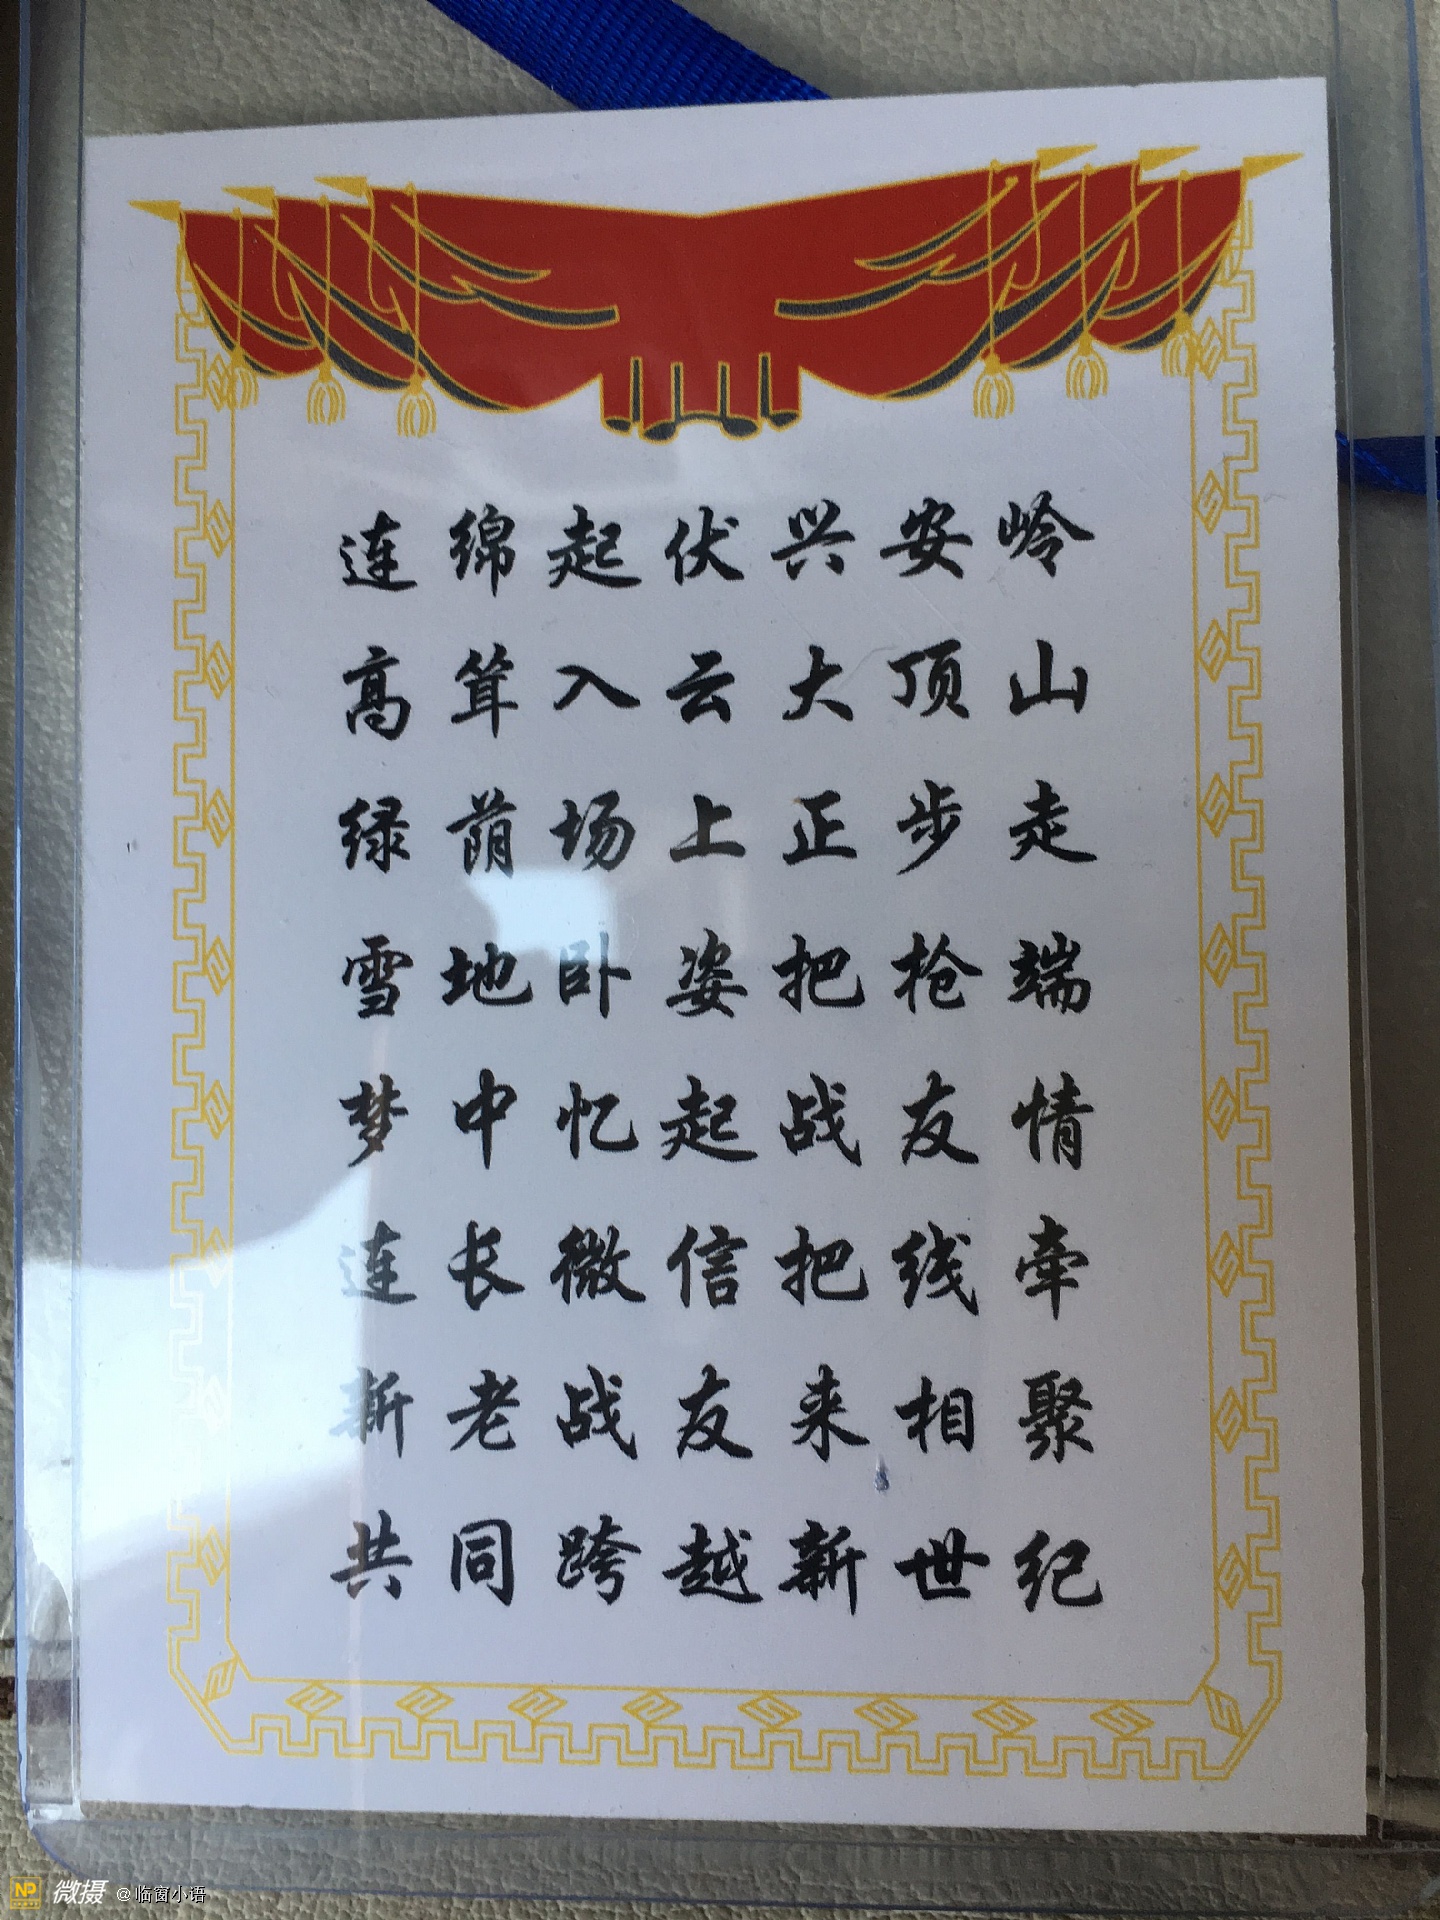 连绵起伏兴安岭
高耸入云大顶山
绿荫场上正步走
雪地卧姿把枪端
梦中忆起战友情
连长微信把线牵
新老战友来相聚
共同跨越新世纪
NP 微摄 @临窗小语